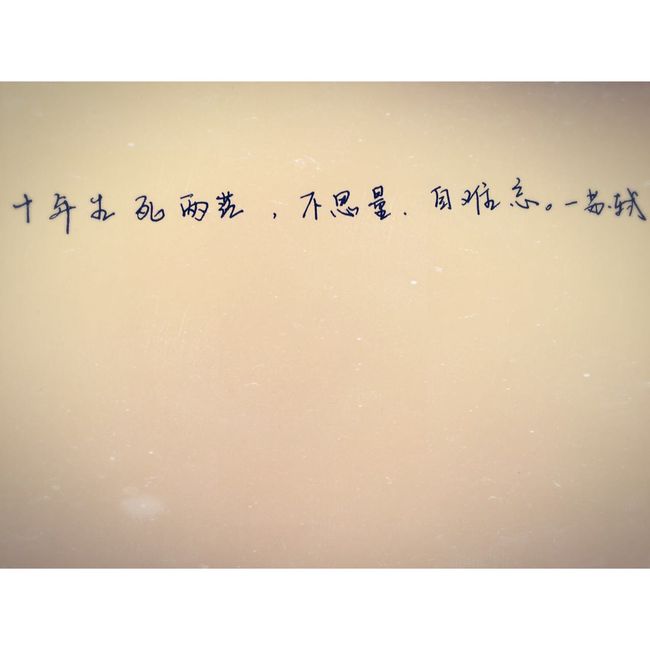 十年生死两茫，不思量，自难忘。—苏轼